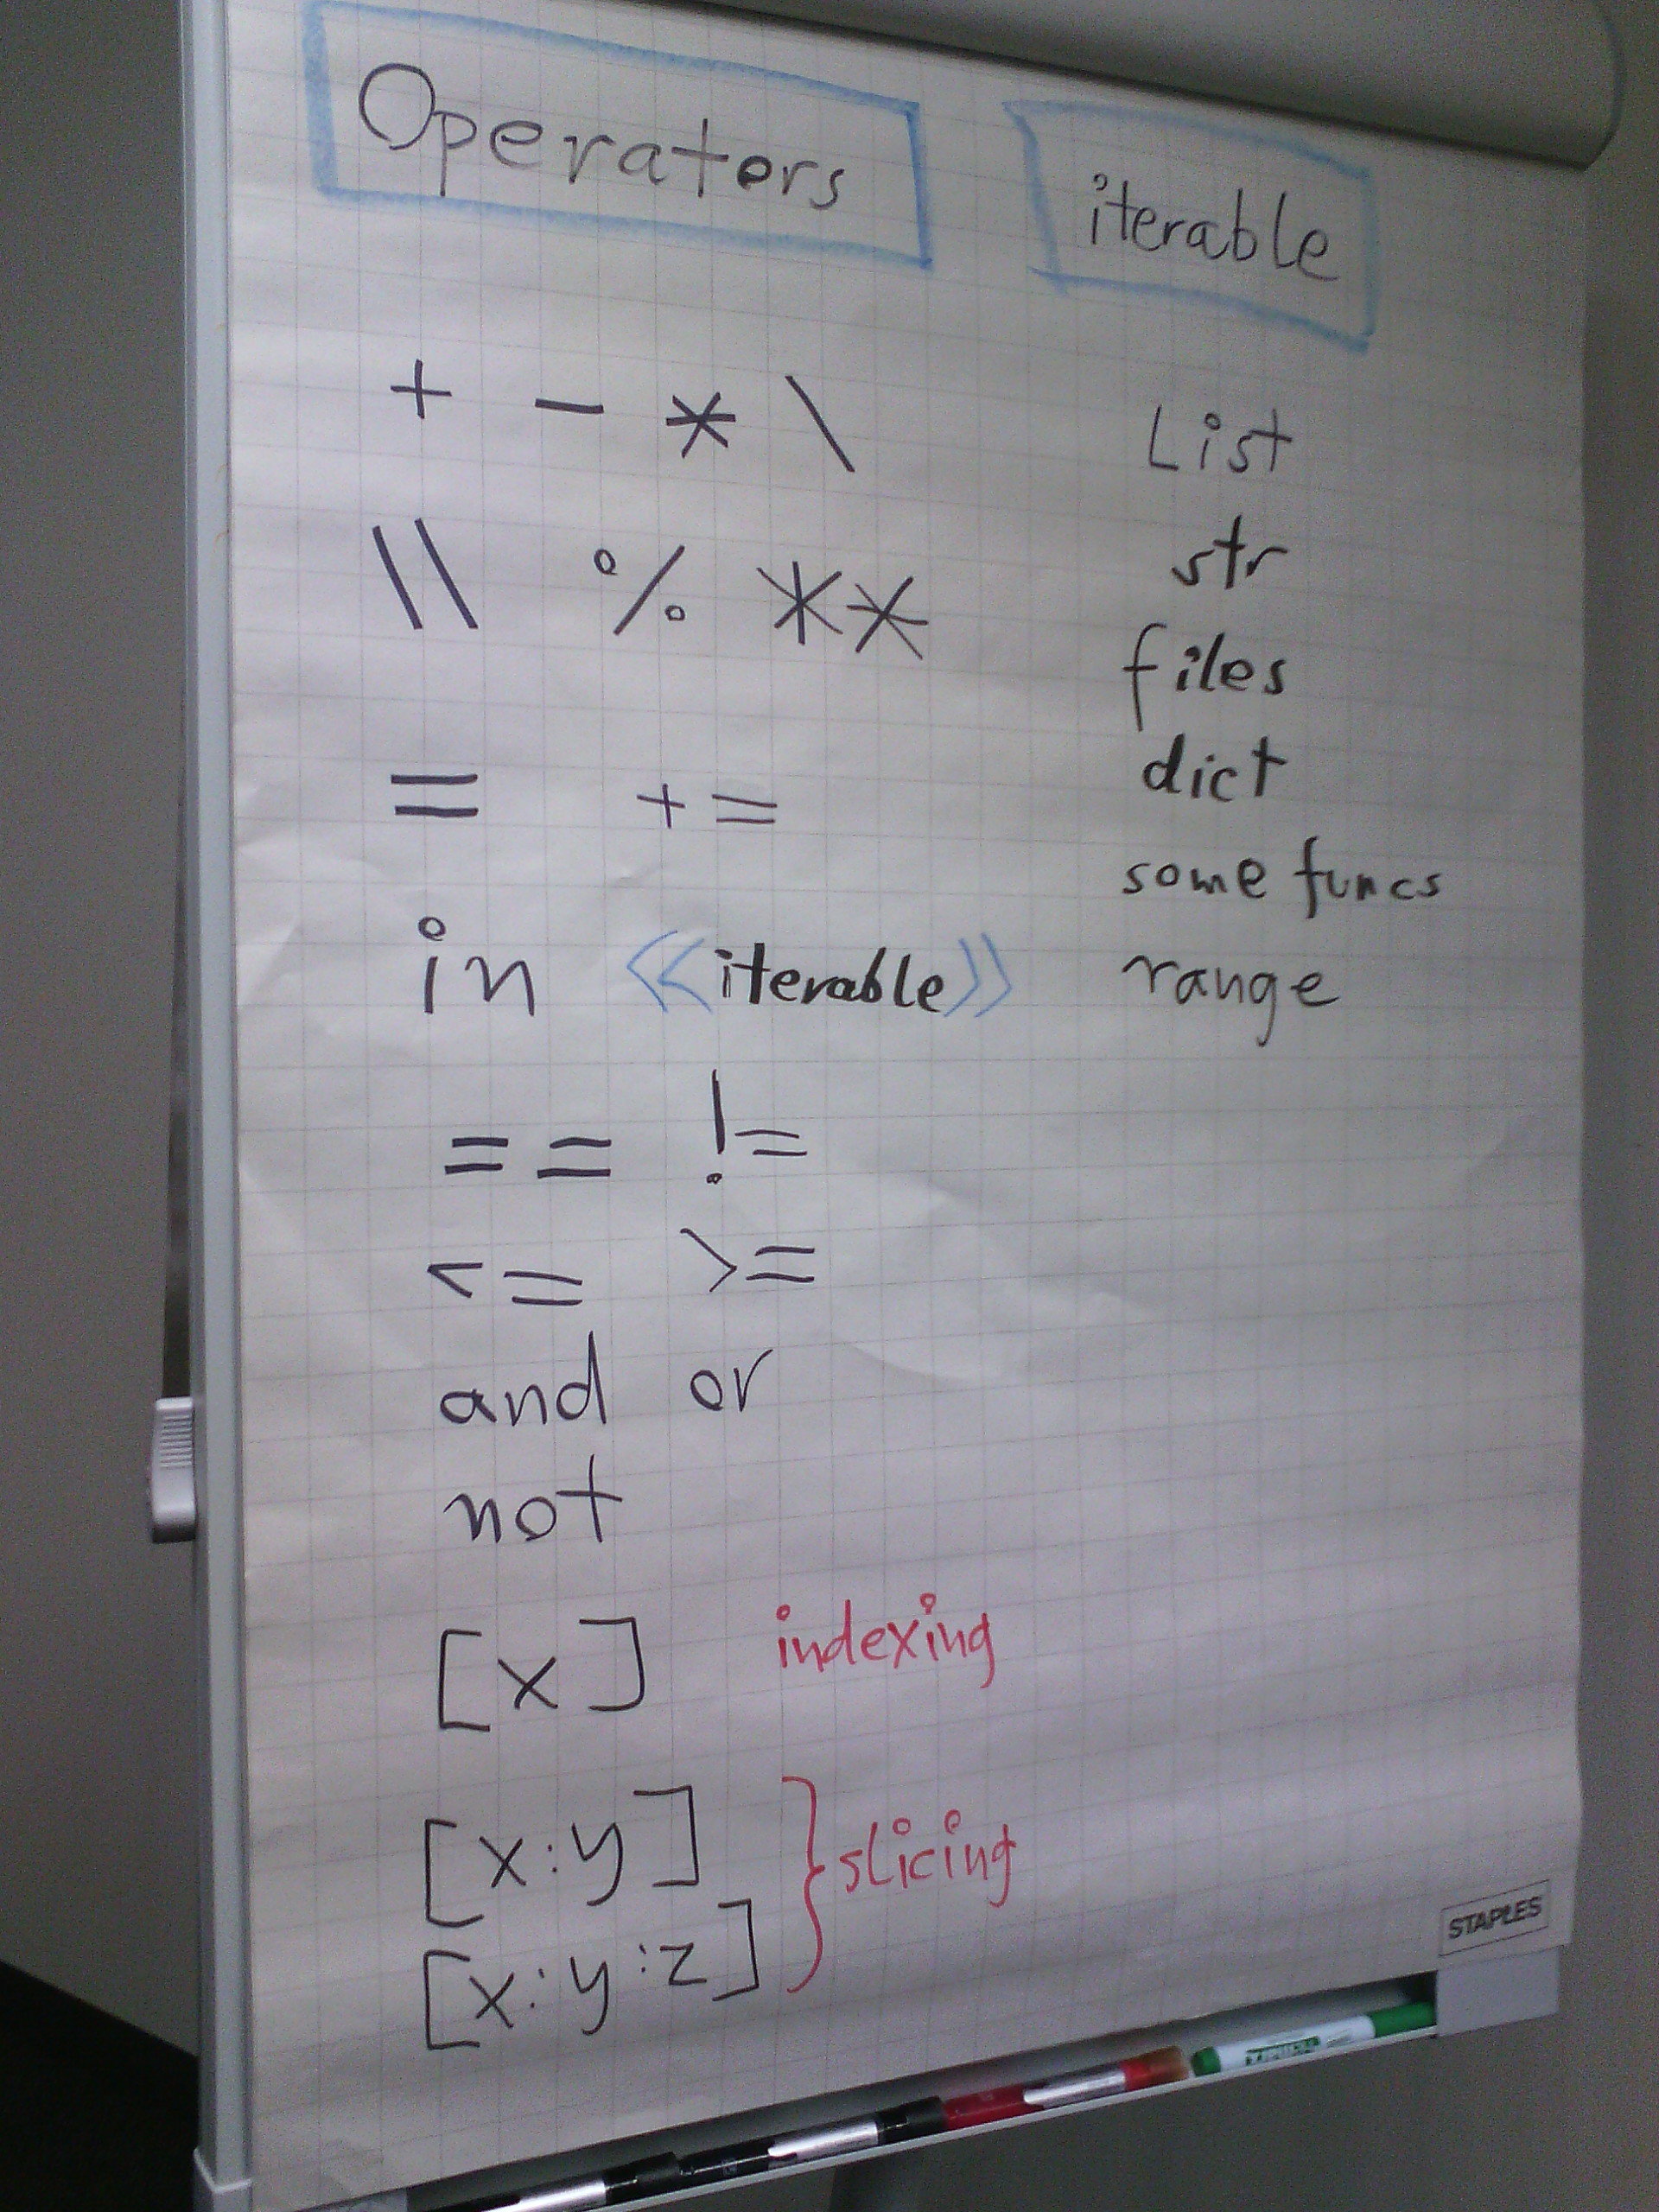 Operators
iterable
+ - * \
\\ % **
= +=
in <<iterable>>
== !=
<= >=
and or
not
[x] indexing
[x:y]
[x:y:z]
} slicing
List
str
files
dict
some funcs
range
STAPLES